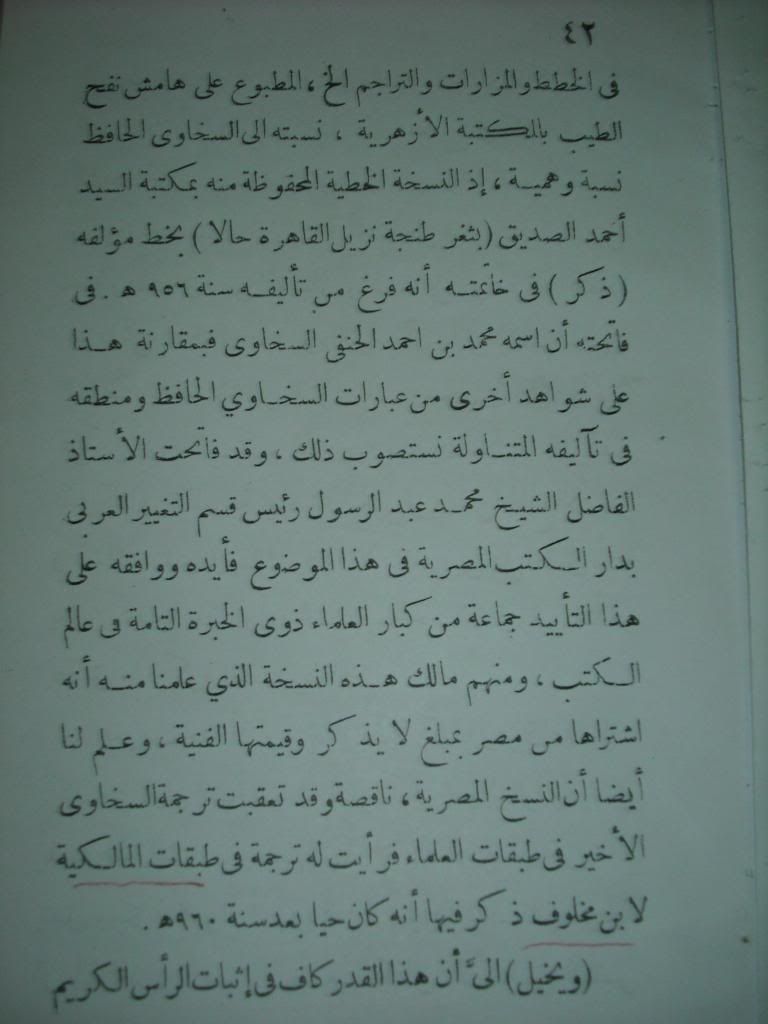 ٤٢
فى الخطط والمزارات والتراجم الخ ، المطبوع على هامش نفح
الطيب بالمكتبة الأزهرية ، نسبته الى السخاوى الحافظ
نسبة وهمية ، إذ النسخة الخطية المحفوظة منه بمكتبة السيد
أحمد الصديق ( بثغر طنجة نزيل القاهرة حالا ) بخط مؤلفه
( ذكر ) فى خاتمته أنه فرغ من تأليفه سنة ٩٥٦ هـ . فى
فاتحته أن اسمه محمد بن احمد الحنفى السخاوى فبمقارنة هذا
على شواهد أخرى من عبارات السخاوي الحافظ ومنطقه
فى تآليفه المتناولة نستصوب ذلك ، وقد فاتحت الأستاذ
الفاضل الشيخ محمد عبد الرسول رئيس قسم التغيير العربى
بدار الكتب المصرية فى هذا الموضوع فأيده ووافقه على
هذا التأييد جماعة من كبار العلماء ذوى الخبرة التامة فى عالم
الكتب ، ومنهم مالك هذه النسخة الذي علمنا منه أنه
اشتراها من مصر بمبلغ لا يذكر وقيمتها الفنية ، وعلم لنا
أيضا أن النسخ المصرية ، ناقصة وقد تعقبت ترجمة السخاوى
الأخير فى طبقات العلماء فرأيت له ترجمة فى طبقات المالكية
لابن مخلوف ذكر فيها أنه كان حيا بعد سنة ٩٦٠هـ .
( ويخيل ) الىَّ أن هذا القدر كاف فى إثبات الرأس الكريم